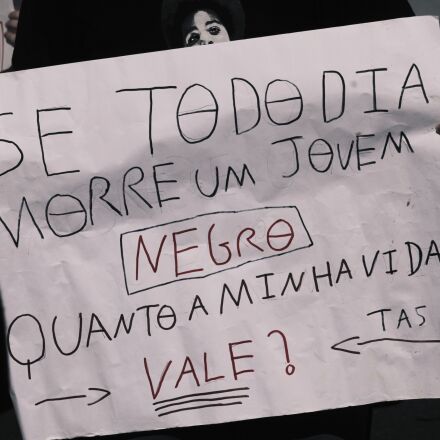 SE TODO DIA
MORRE UM JOVEM
NEGRO
QUANTO A MINHA VIDA
VALE?
TAS